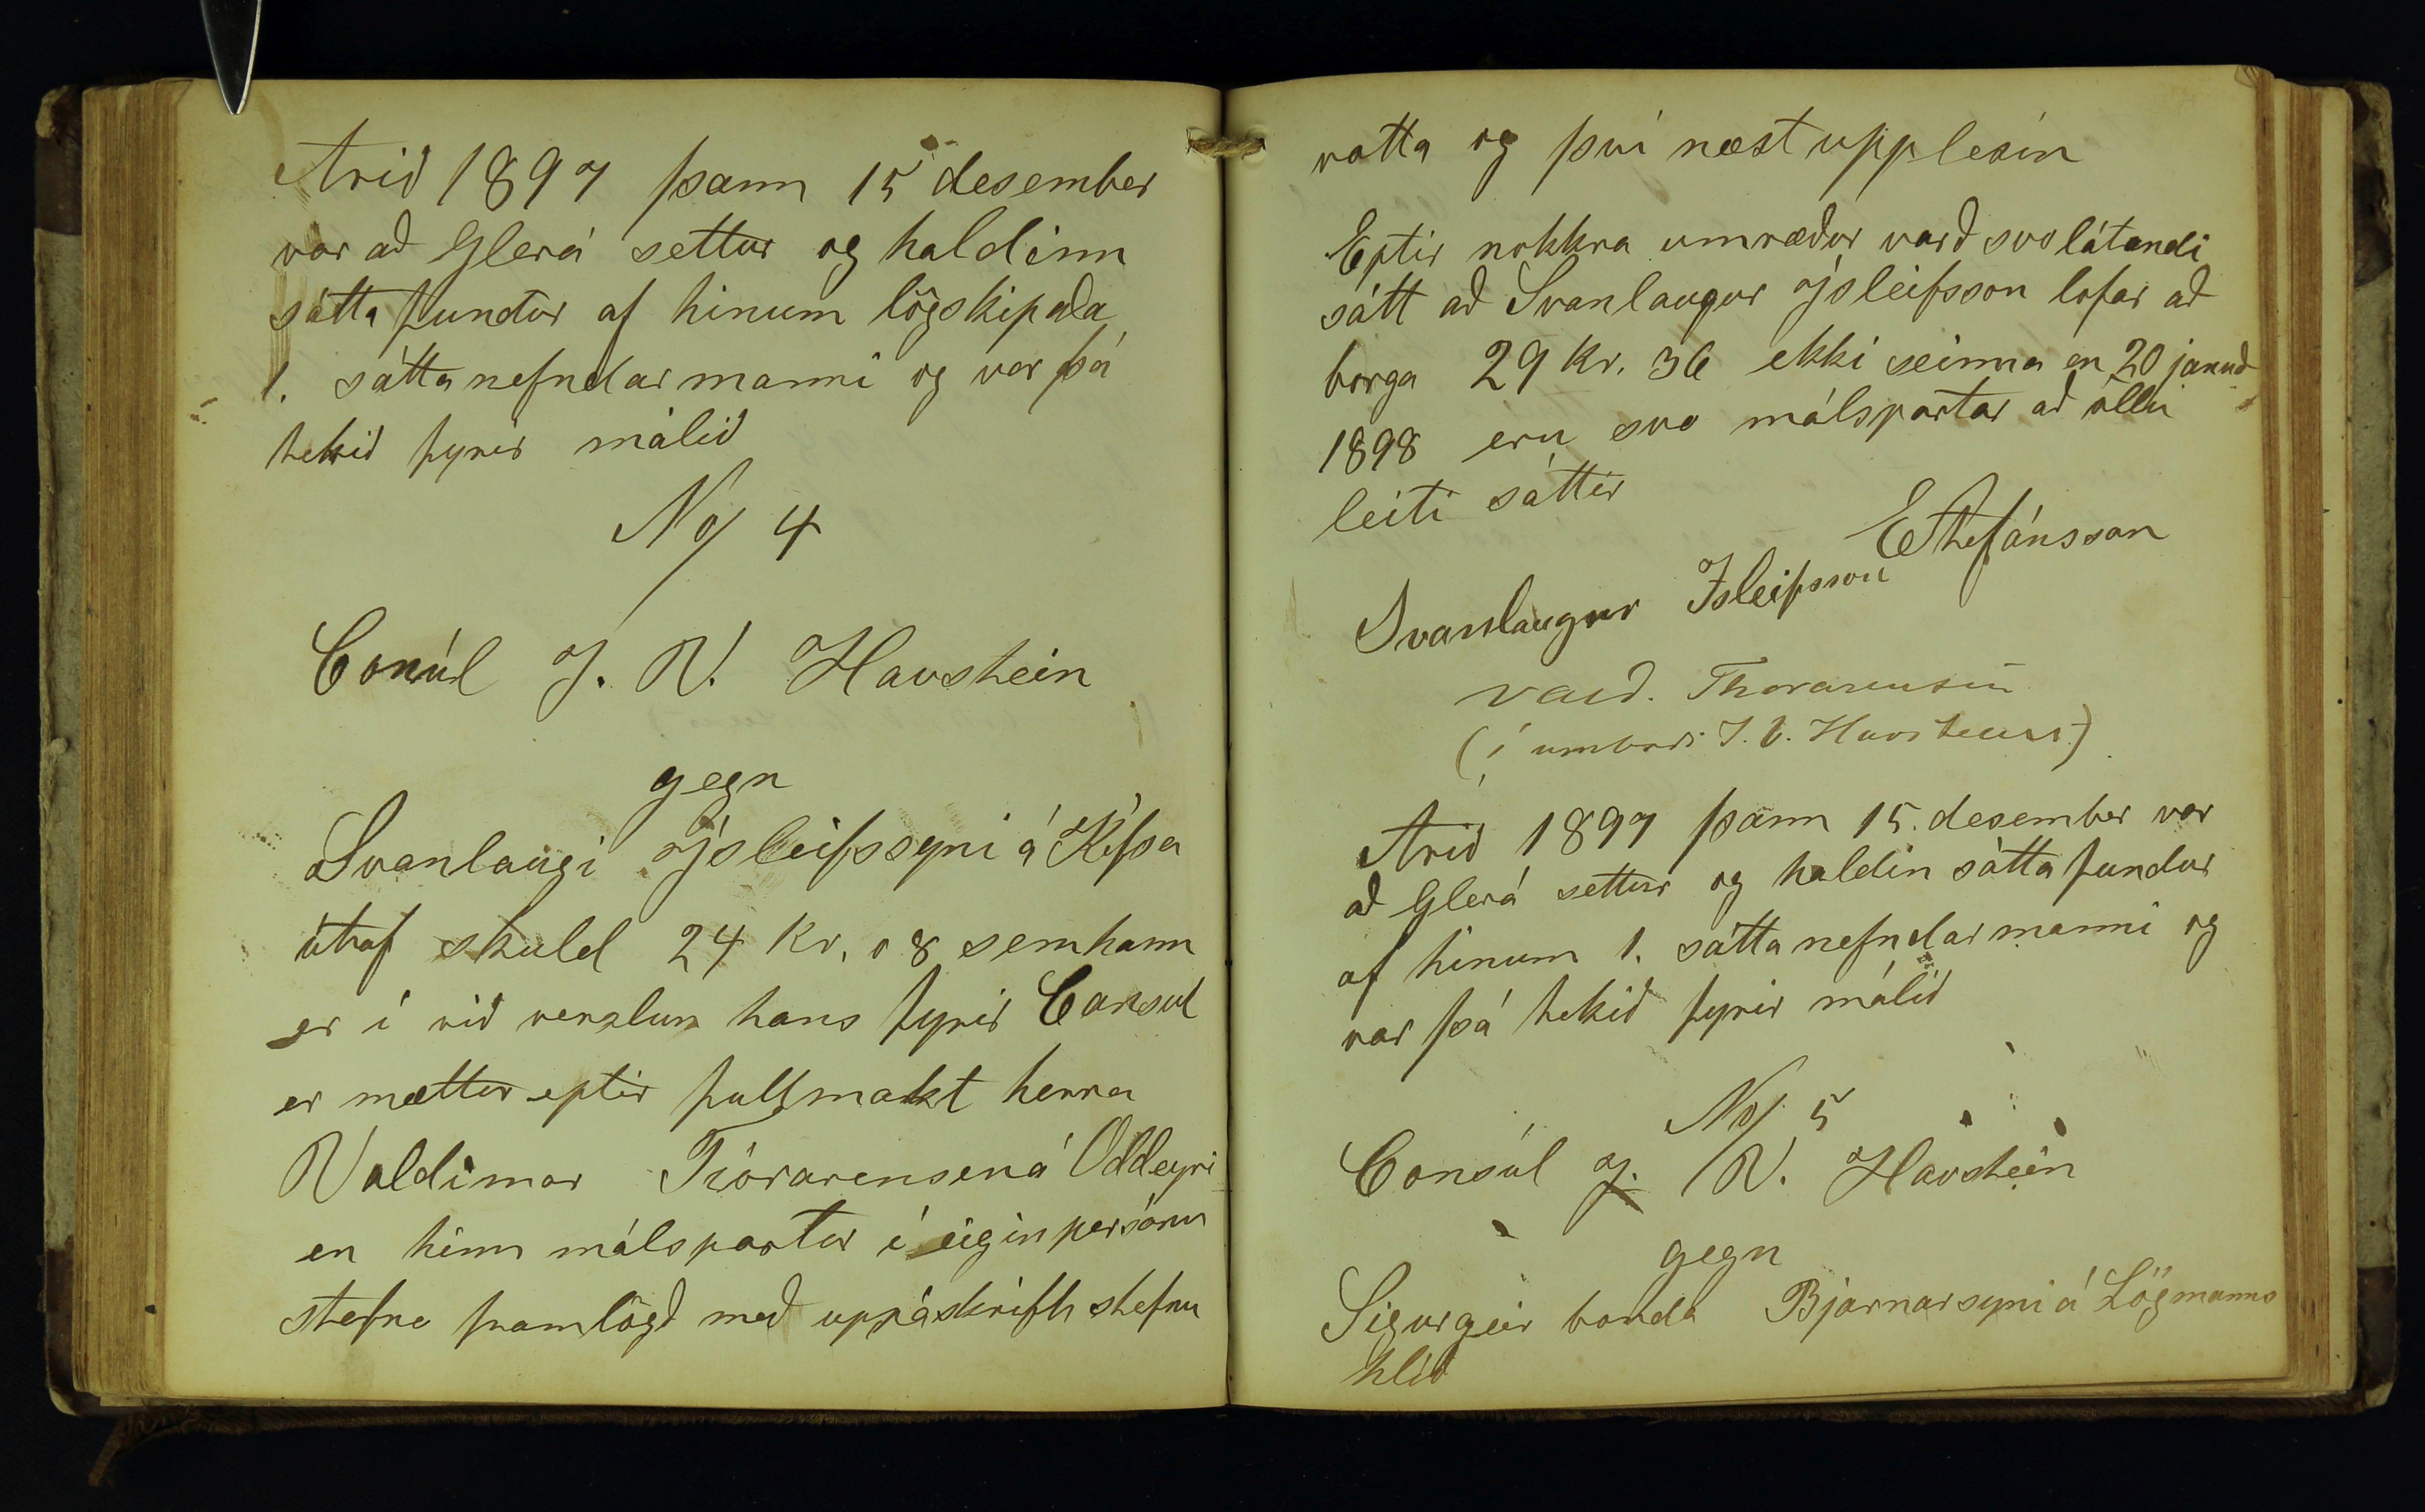 Arið 1897 þann 15 desember
var að Glerá settur og haldinn
sátta fundur af hinum lögskipaða
1. sáttanefndarmanni og var þá
tekið fyrir málið
No/ 4
Consúl J. V. Havstein
gegn
Svanlaugi Jsleifssyni á Kífsá
útaf skuld 24 kr. 08 sem hann
er í við verzlun hans fyrir Consul
er mættur eptir fullmakt herra
Valdimar Tórarensen á Oddeyri
en hinn málspartur í eigin persónu
stefna framlögð með uppáskrift stefnu
votta og því næst upplesin
Eptir nokkra umræður varð svolátandi
sátt að Svanlaugur Jsleifsson lofar að
borga 29 kr. 36 ekki seinna en 20 januar
1898 eru svo málspartar að öllu
leiti sáttir
EStefánsson
Svanlaugur Isleifsson
Vald. Thorarensen
(í umboði J. V. Havsteens)
Arið 1897 þann 15. desember var
að Glerá settur og haldin sátta fundur
af hinum 1. sáttanefndarmanni og
var þá tekið fyrir málið
No/ 5
Consúl J. V. Havstein
gegn
Sigurgeir bónda Bjarnarsyni á Lögmanns
hlíð